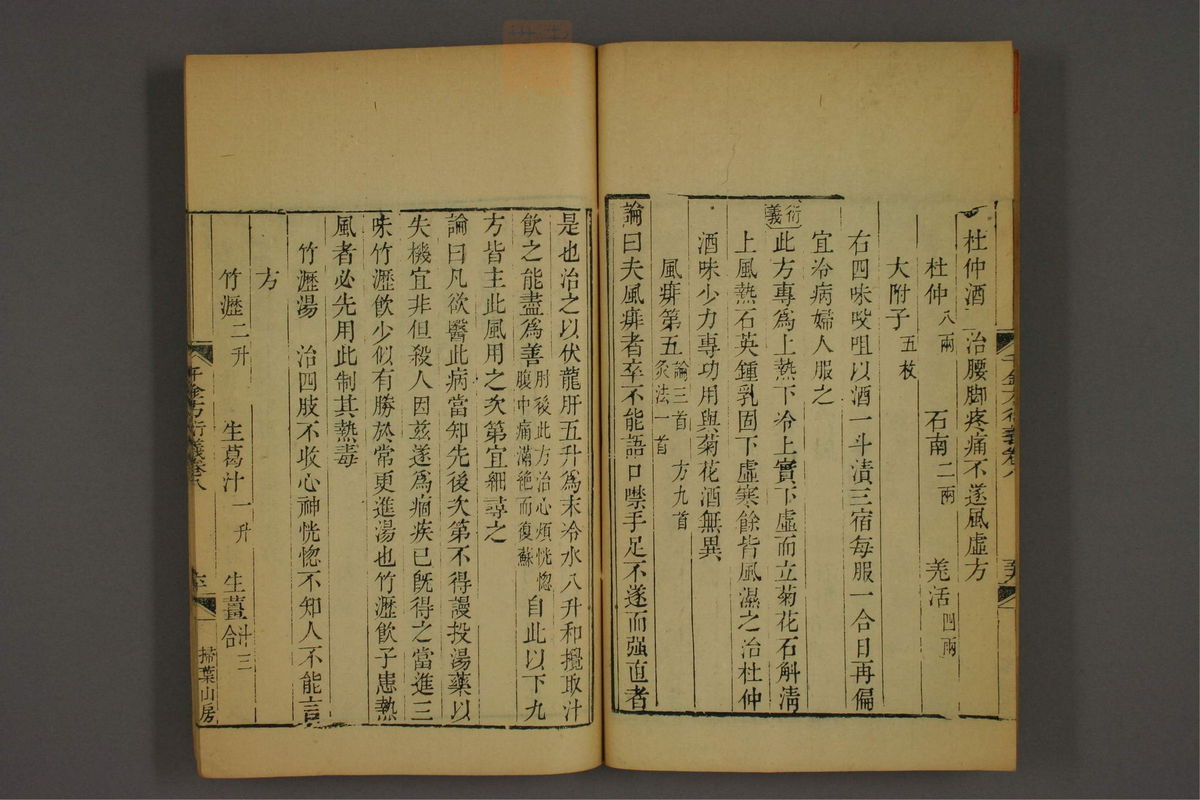 杜仲酒 治腰脚疼痛不遂風虛方
杜仲八兩 石南二兩 羌活四兩
大附子五枚
右四味㕮咀以酒一斗漬三宿每服一合日再偏
宜冷病婦人服之
衍義 此方專為上熱下冷上實下虛而立菊花石斛淸
上風熱石英鍾乳固下虛寒餘皆風濕之治杜仲
酒味少力專功用與菊花酒無異
風痱第五 論三首 方九首 灸法一首
論曰夫風痱者卒不能語口噤手足不遂而强直者
是也治之以伏龍肝五升為末冷水八升和攪取汁
飮之能盡為善 肘後此方治心煩恍惚腹中痛滿絶而復蘇 自此以下九
方皆主此風用之次第宜細尋之
論曰凡欲醫此病當知先後次第不得謾投湯藥以
失機宜非但殺人因玆遂為痼疾已旣得之當進三
味竹瀝飮少似有勝於常更進湯也竹瀝飮子患熱
風者必先用此制其熱毒
竹瀝湯 治四肢不收心神恍惚不知人不能言
方
竹瀝二升 生葛汁一升 生薑汁三合
千金方衍義卷八
掃葉山房